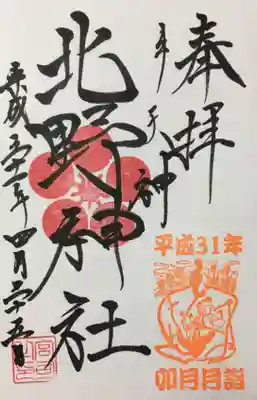 奉拝
牛天神
北野神社
平成三十一年四月二十五日
平成31年
卯月月詣